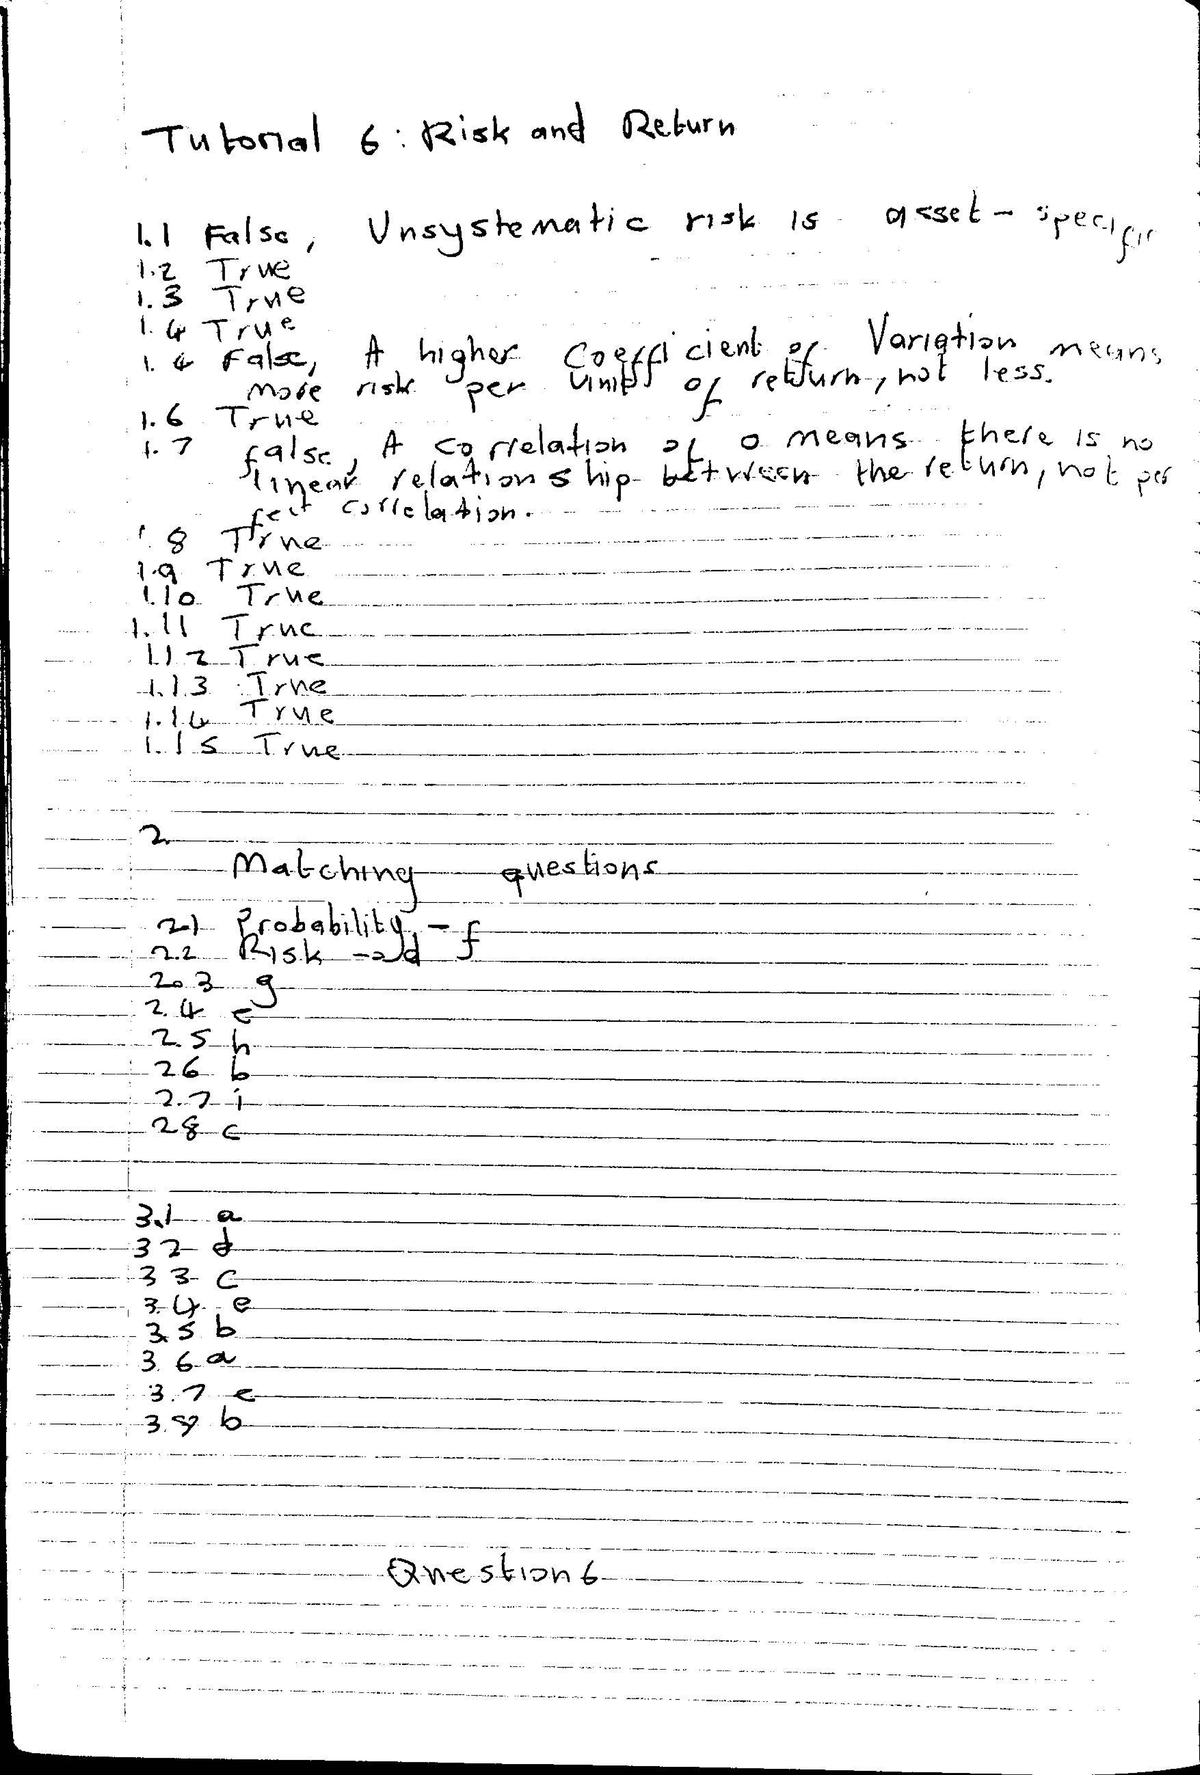 Tutorial 6: Risk and Return
1.1 False, Unsystematic risk is asset-specific
1.2 True
1.3 True
1.4 True
1.4 False, A higher Coefficient of Variation means
more risk per units of return, not less.
1.6 True
1.7 false, A correlation of 0 means there is no
linear relationship between the return, not per
fect correlation.
1.8 True
1.9 True
1.10 True
1.11 True
1.12 True
1.13 True
1.14 True
1.15 True
2
Matching questions
2.1 Probability - f
2.2 Risk - d
2.3 g
2.4 e
2.5 h
2.6 b
2.7 i
2.8 c
3.1 a
3.2 d
3.3 c
3.4 e
3.5 b
3.6 a
3.7 c
3.8 b
Question 6